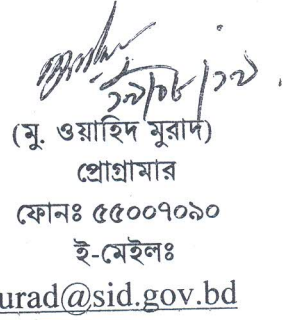 (মু. ওয়াহিদ মুরাদ)
প্রোগ্রামার
ফোনঃ ৫৫০০৭০৯০
ই-মেইলঃ
urad@sid.gov.bd